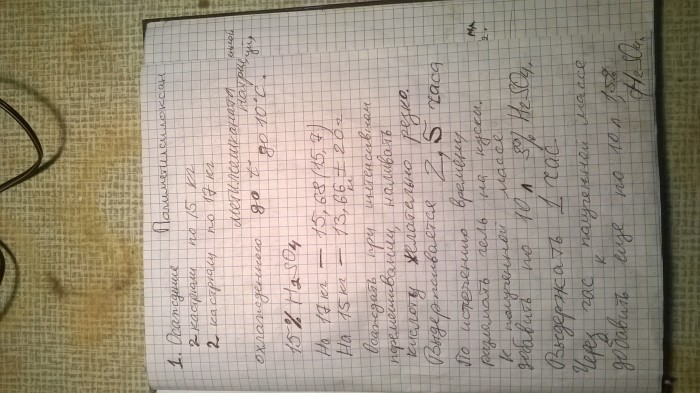 Полиметилсилоксан
1. Осаждение
2 кастрюли по 15 кг
2 кастрюли по 17 кг
метилсиликаната натрия
охлажденного до t° до 10°C.
15% H2SO4
На 17 кг — 15,68 (15,7)
На 15 кг — 13,66 ± 20 г
Осаждать при интенсивном
перемешивании, наливать
кислоту желательно резко.
Выдерживается 2,5 часа
По истечению времени
разломать гель на куски.
К полученной массе
добавить по 10 л 3% H2SO4.
Выдержать 1 час
Через час к полученной массе
добавить еще по 10 л H2SO4